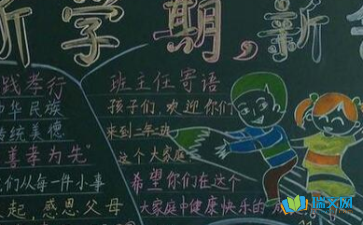 新学期,新
践孝行
中华民族
传统美德
善孝为先"
们从每一件小事
起,感恩父母
班主任寄语
孩子们,欢迎你们
来到二年班
这个大家庭
希望你们在这个
大家庭中健康快乐的成